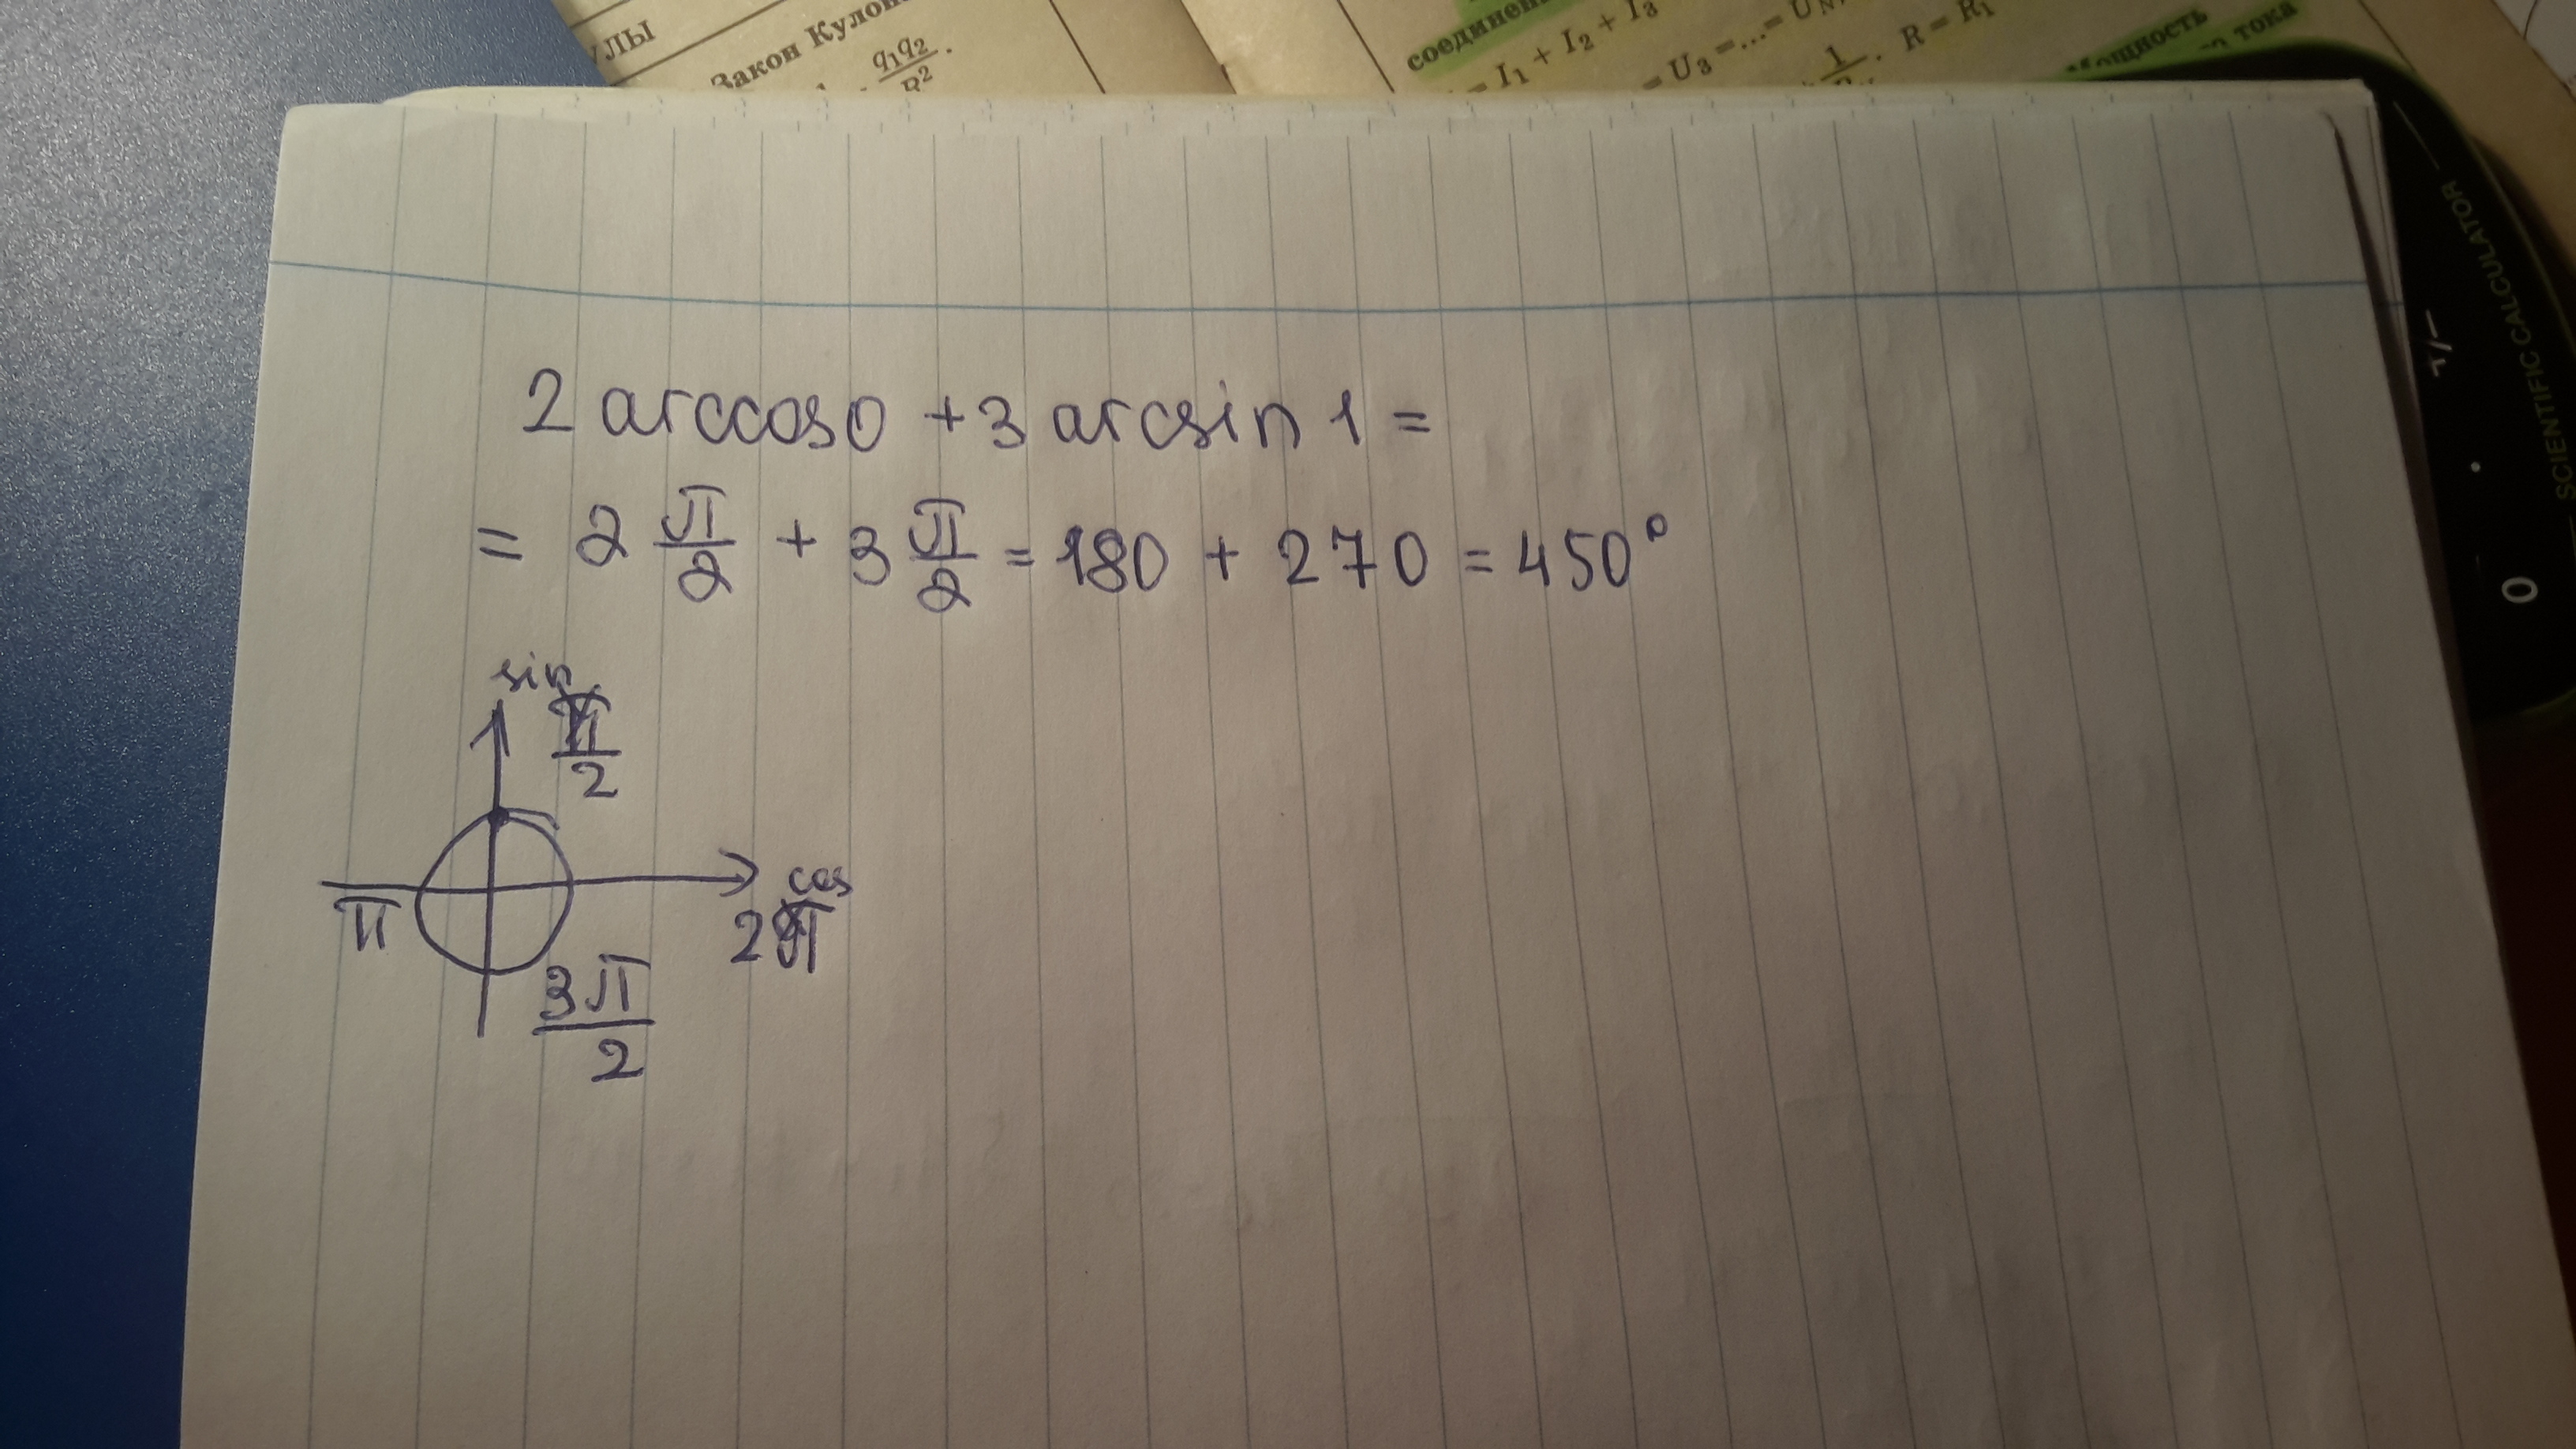 УЛЫ
Закон Кулон
q₁q₂
R²
соединен
= I₁ + I₂ + I₃
= U₃ = ... = U
1
R = R₁
Мощность
тока
SCIENTIFIC CALCULATOR
+/−
.
0
2 arccos 0 + 3 arcsin 1 =
= 2 π/2 + 3 π/2 = 180 + 270 = 450°
sin
π/2
cos
π
2π
3π/2